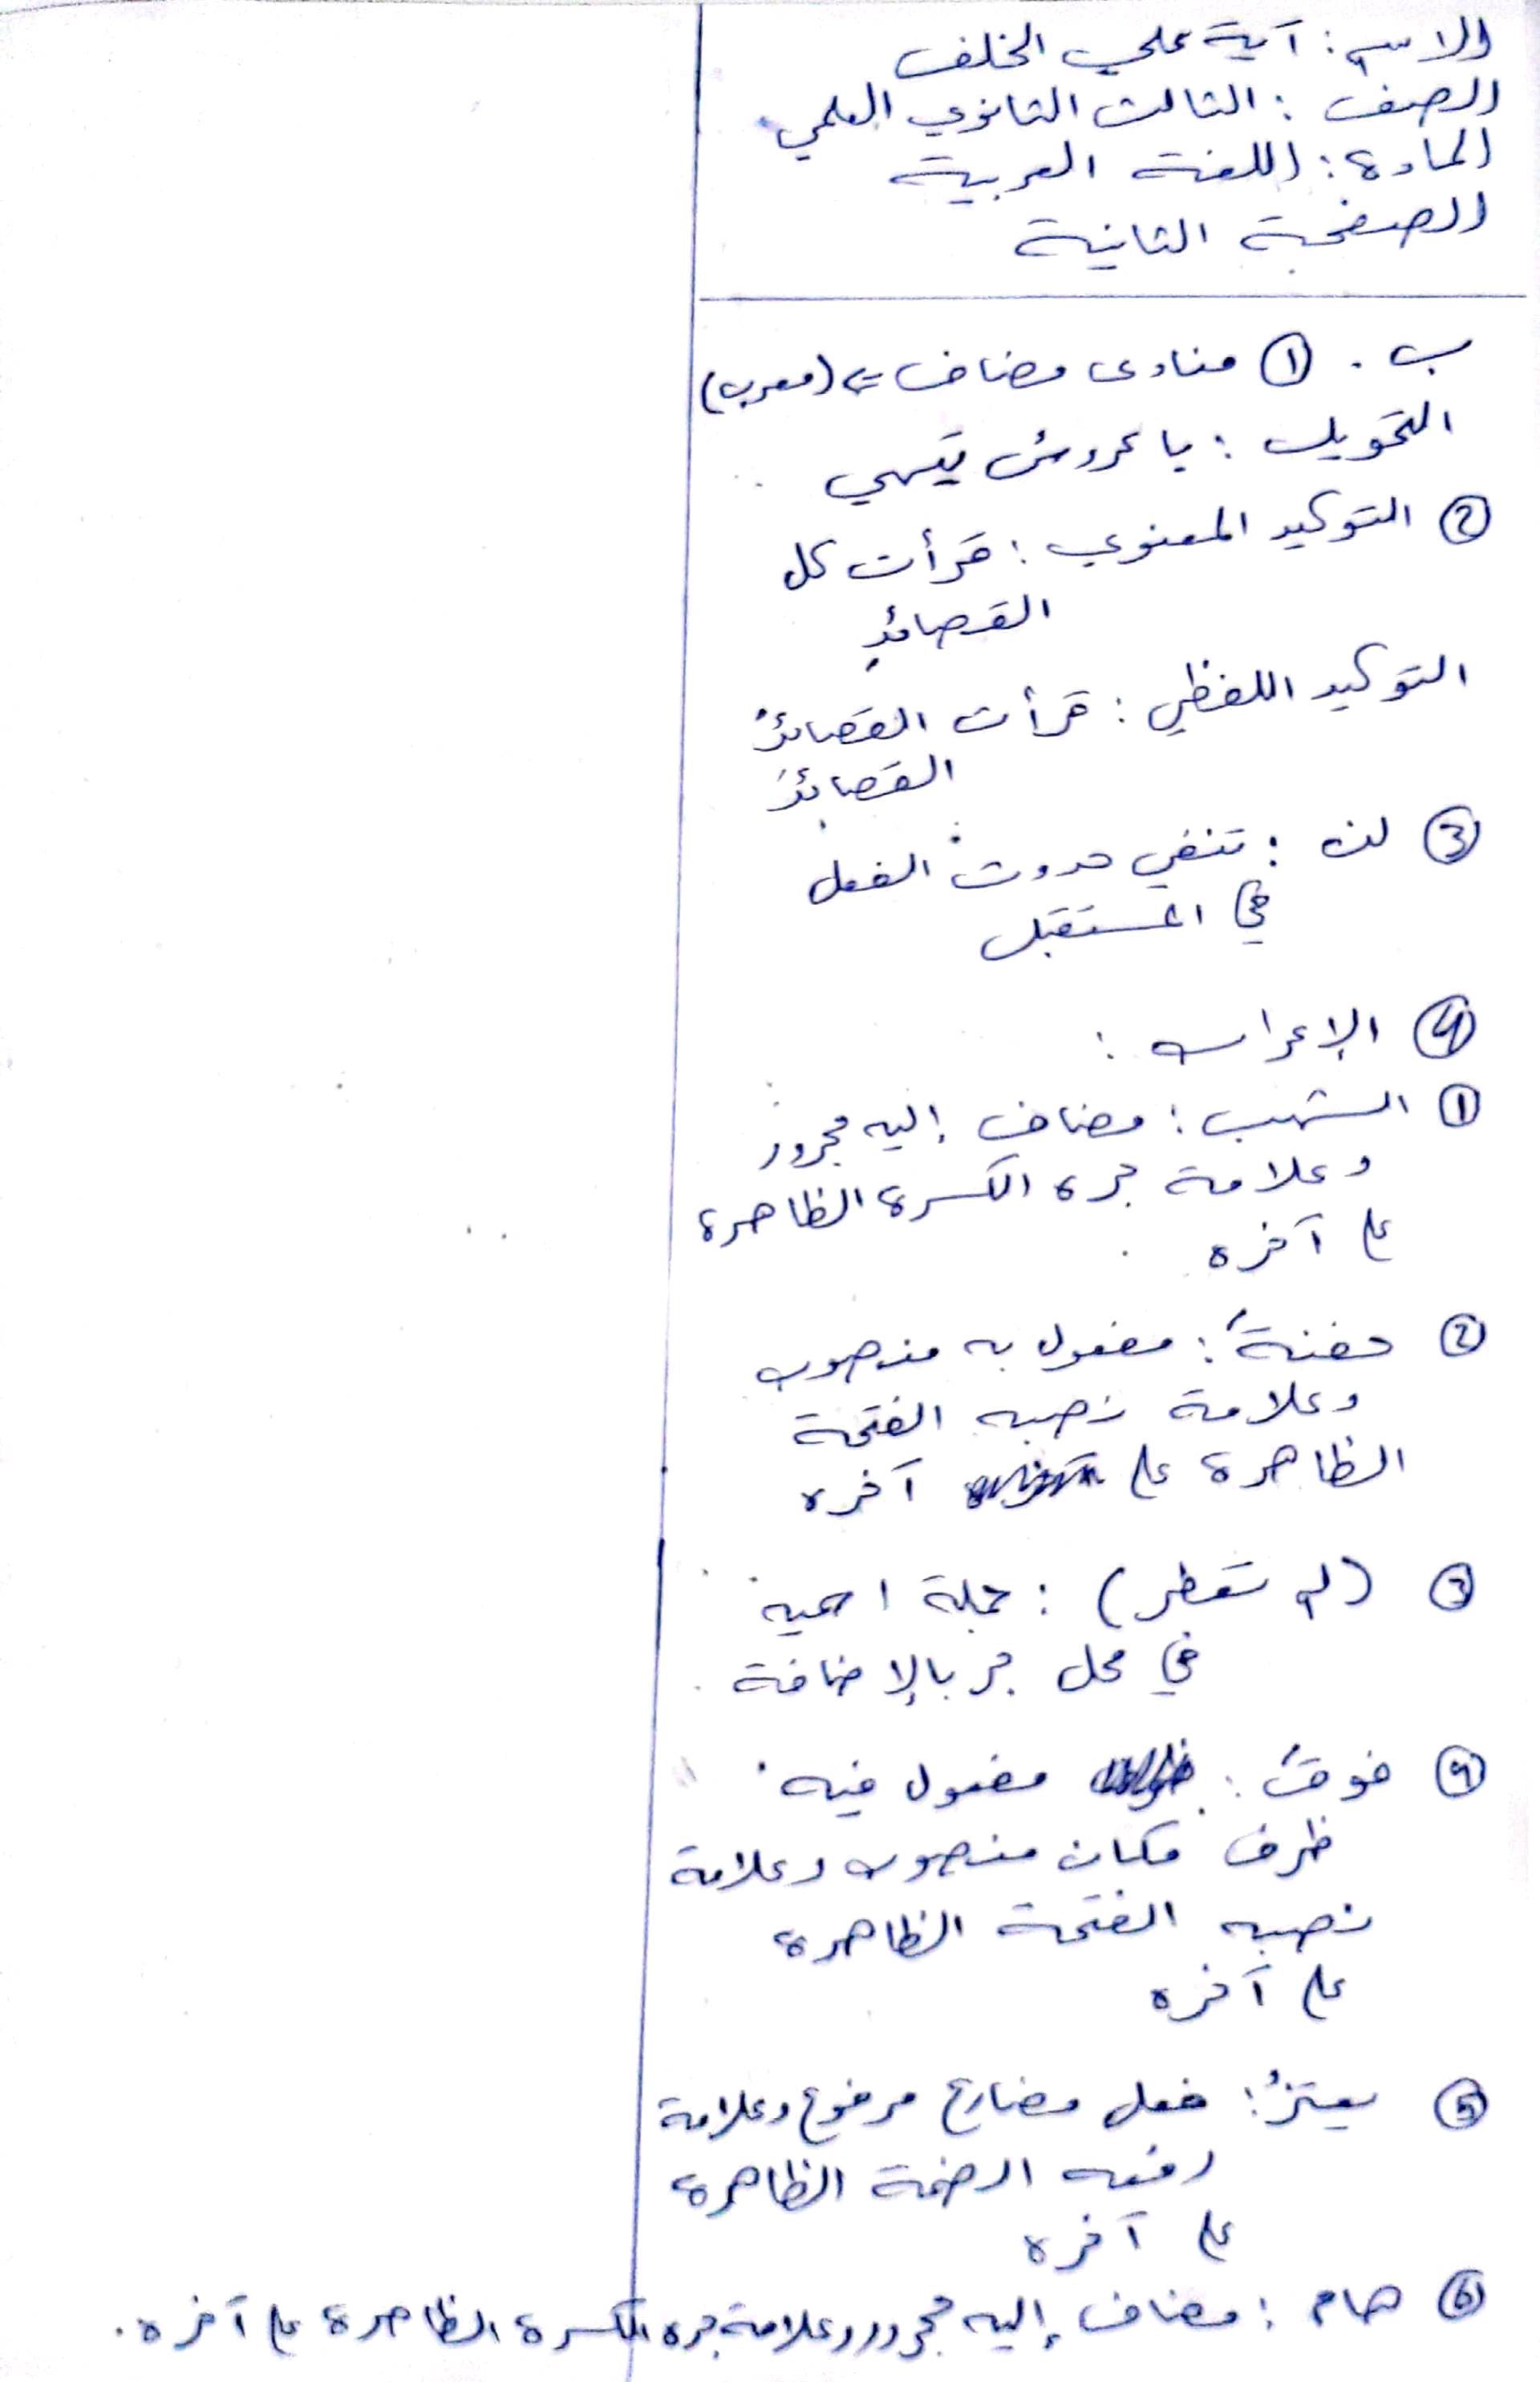 الاسم : آية علي الخلف
الصف : الثالث الثانوي العلمي
المادة : اللغة العربية
الصفحة الثانية
ب . ① منادى مضاف => (معرب)
التحويل : يا عروسُ تيهي
② التوكيد المعنوي : قرأت كل
القصائدِ
التوكيد اللفظي : قرأت القصائدَ
القصائدَ
③ لن : تنفي حدوث الفعل
في المستقبل
④ الإعراب :
① الشهب : مضاف إليه مجرور
وعلامة جره الكسرة الظاهرة
على آخره
② حفنةً : مفعول به منصوب
وعلامة نصبه الفتحة
الظاهرة على آخره
③ (لم تعطر) : جملة اسمية
في محل جر بالإضافة
④ فوقَ : مفعول فيه
ظرف مكان منصوب وعلامة
نصبه الفتحة الظاهرة
على آخره
⑤ يعتزُ : فعل مضارع مرفوع وعلامة
رفعه الضمة الظاهرة
على آخره
⑥ هام : مضاف إليه مجرور وعلامة جره الكسرة الظاهرة على آخره .